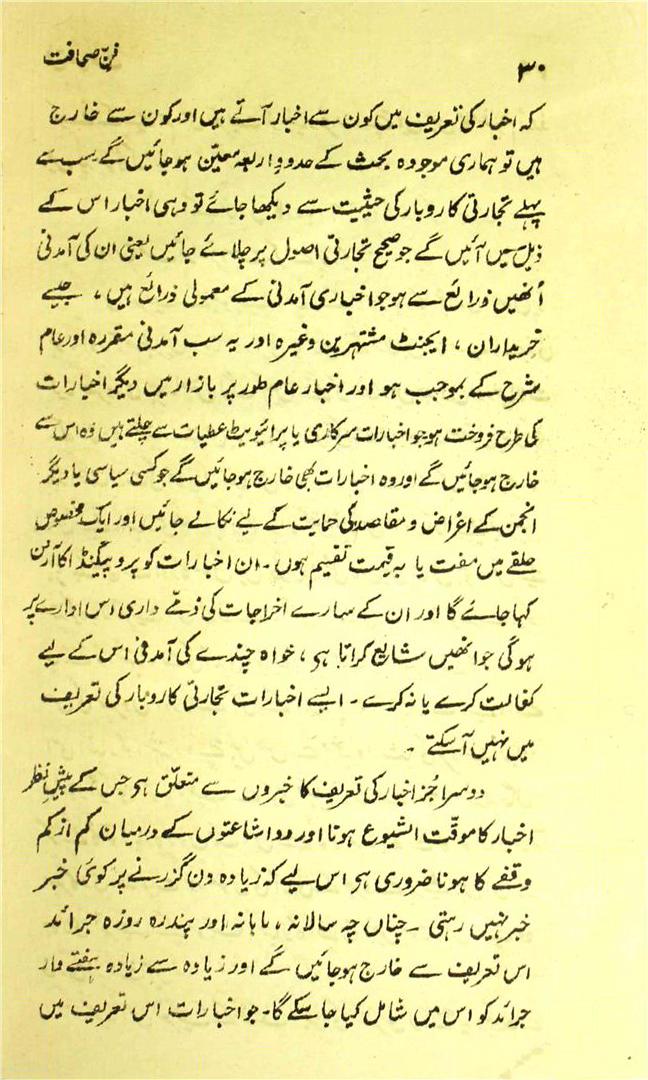 ۳۰
فنِّ صحافت
کہ اخبار کی تعریف میں کون سے اخبار آتے ہیں اور کون سے خارج
ہیں تو ہماری موجودہ بحث کے حدودِ اربعہ معیّن ہوجائیں گے سب سے
پہلے تجارتی کاروبار کی حیثیت سے دیکھا جائے تو وہی اخبار اس کے
ذیل میں آئیں گے جو صحیح تجارتی اصول پر چلائے جائیں یعنی ان کی آمدنی
اُنھیں ذرائع سے ہو جو اخباری آمدنی کے معمولی ذرائع ہیں، جیسے
خریداران، ایجنٹ مشتہرین وغیرہ اور یہ سب آمدنی مقررہ اور عام
شرح کے بموجب ہو اور اخبار عام طور پر بازار میں دیگر اخبارات
کی طرح فروخت ہو جو اخبارات سرکاری یا پرائیویٹ عطیات سے چلتے ہیں وہ اس سے
خارج ہوجائیں گے اور وہ اخبارات بھی خارج ہوجائیں گے جو کسی سیاسی یا دیگر
انجمن کے اغراض و مقاصد کی حمایت کے لیے نکالے جائیں اور ایک مخصوص
حلقے میں مفت یا بہ قیمت تقسیم ہوں۔ ان اخبارات کو پروپیگنڈا کا آرگن
کہا جائے گا اور ان کے سارے اخراجات کی ذمّے داری اس ادارے پر
ہوگی جو انھیں شایع کراتا ہے، خواہ چندے کی آمدنی اس کے لیے
کفالت کرے یا نہ کرے۔ ایسے اخبارات تجارتی کاروبار کی تعریف
میں نہیں آسکتے۔
دوسرا جُز اخبار کی تعریف کا خبروں سے متعلّق ہے جس کے پیشِ نظر
اخبار کا موقّت الشیوع ہونا اور دو اشاعتوں کے درمیان کم از کم
وقفے کا ہونا ضروری ہے اس لیے کہ زیادہ دن گزرنے پر کوئی خبر
خبر نہیں رہتی۔ چناں چہ سالانہ، ماہانہ اور پندرہ روزہ جرائد
اس تعریف سے خارج ہوجائیں گے اور زیادہ سے زیادہ ہفتے وار
جرائد کو اس میں شامل کیا جاسکے گا۔ جو اخبارات اس تعریف میں